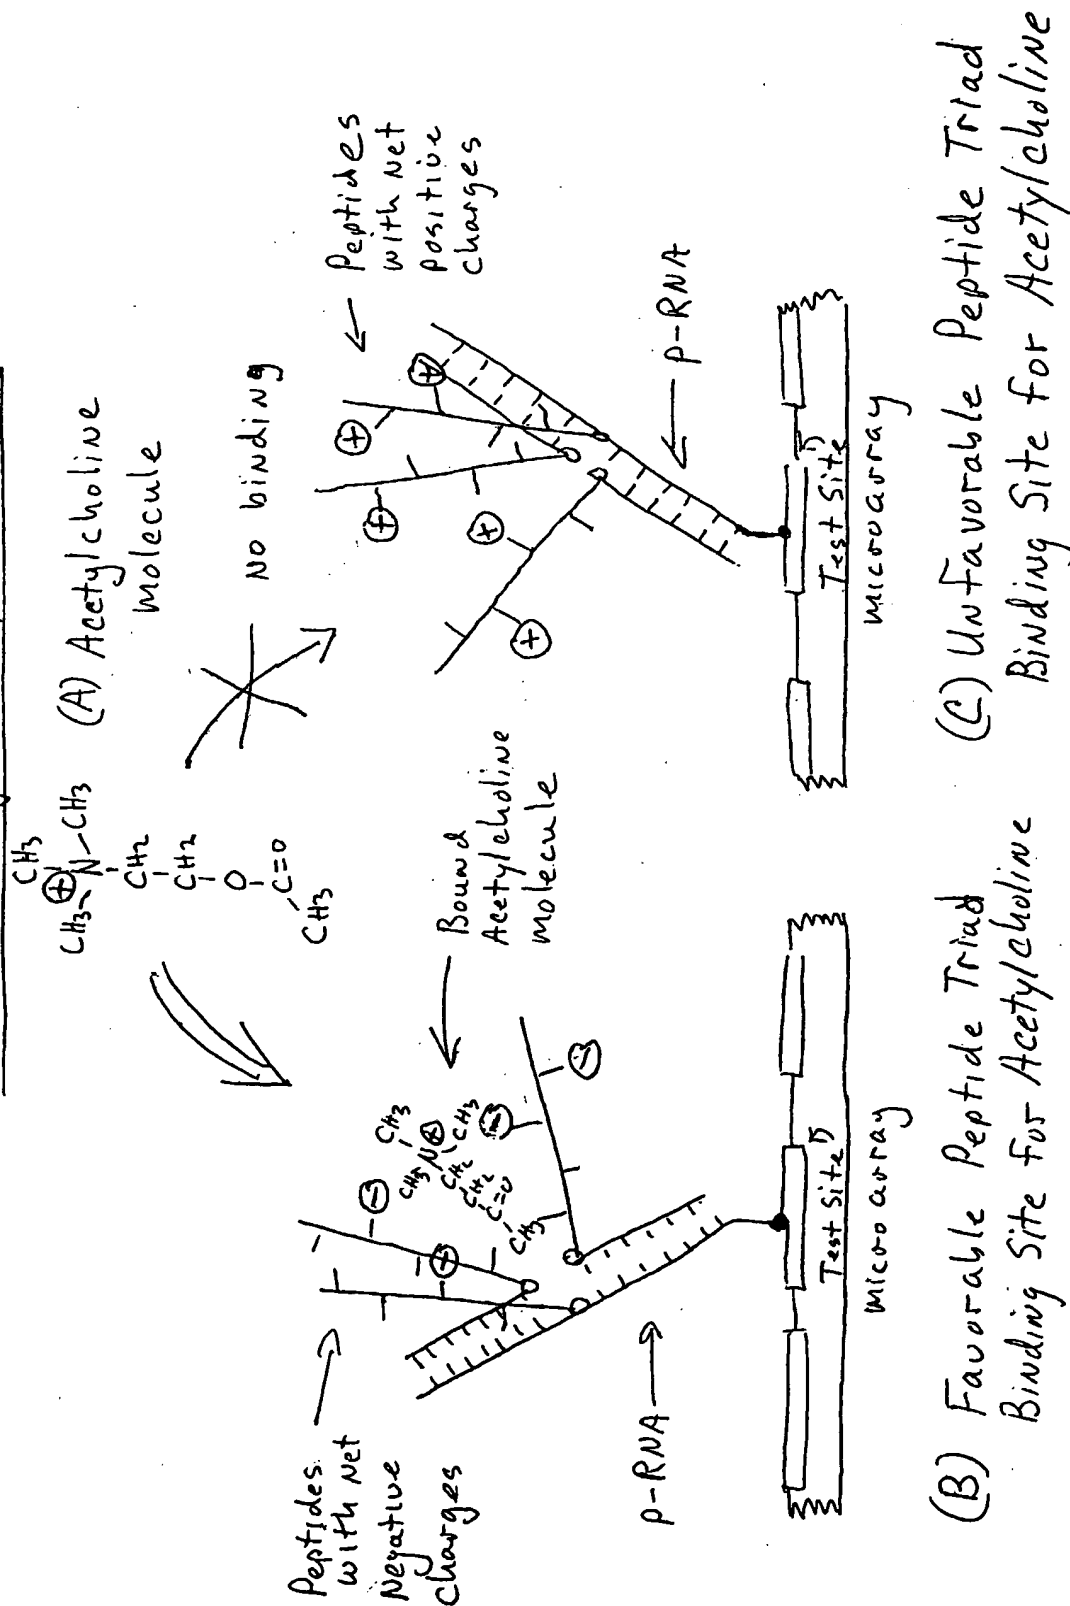 CH3
⊕
CH3-N-CH3
CH2
CH2
O
C=O
CH3
(A) Acetylcholine
Molecule
No binding
Peptides
with Net
Negative
Charges
⊖
⊕
CH3
CH3 N⊕
CH3
CH2
CH2
C=O
CH3
⊖
⊖
Bound
Acetylcholine
Molecule
p-RNA
Test Site
Microarray
(B) Favorable Peptide Triad
Binding Site for Acetylcholine
Peptides
with Net
positive
charges
⊕
⊕
⊕
⊕
⊕
p-RNA
Test Site
Microarray
(C) Unfavorable Peptide Triad
Binding Site for Acetylcholine